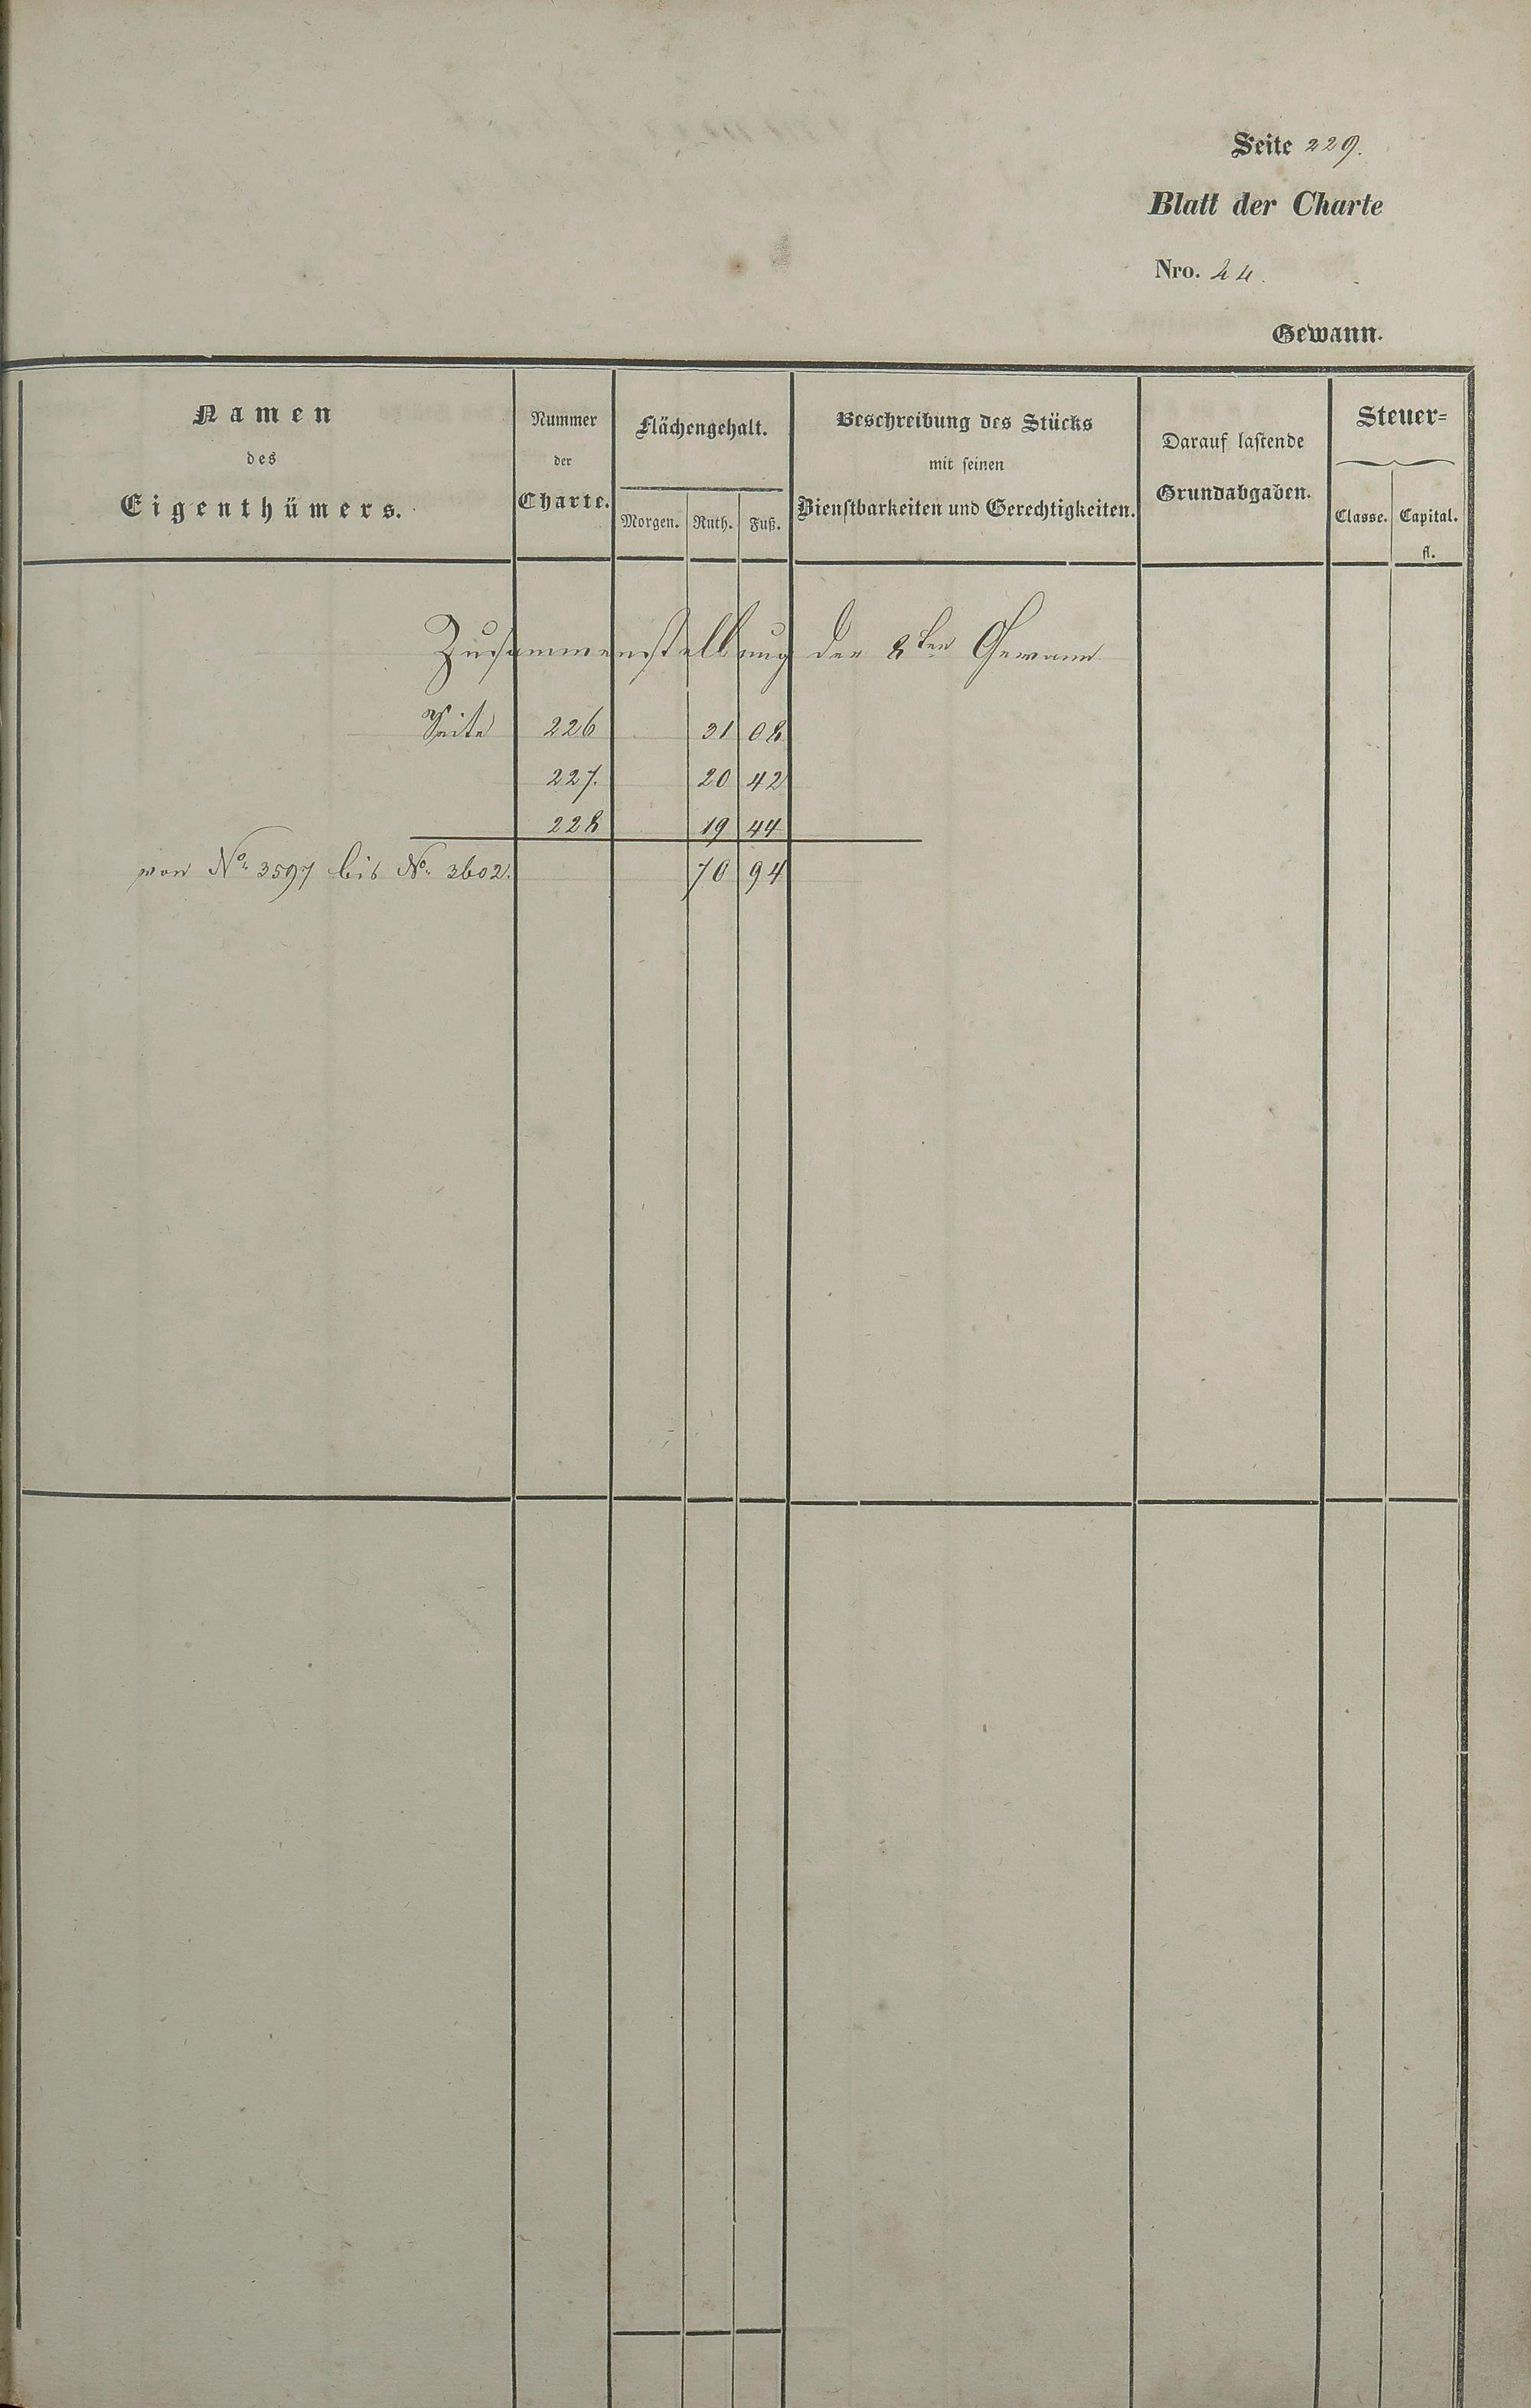 Seite 229.
Blatt der Charte
Nro. 24.
Gewann.
Namen
des
Eigenthümers.
Nummer
der
Charte.
Flächengehalt.
Morgen. Ruth. Fuß.
Beschreibung des Stücks
mit seinen
Dienstbarkeiten und Gerechtigkeiten.
Darauf lastende
Grundabgaben.
Steuer=
Classe. Capital.
fl.
Zusammenstellung der 8ten Gewann
Seite 226 31 08
227. 20 42
228 19 44
von No. 3597 bis No. 3602. 70 94